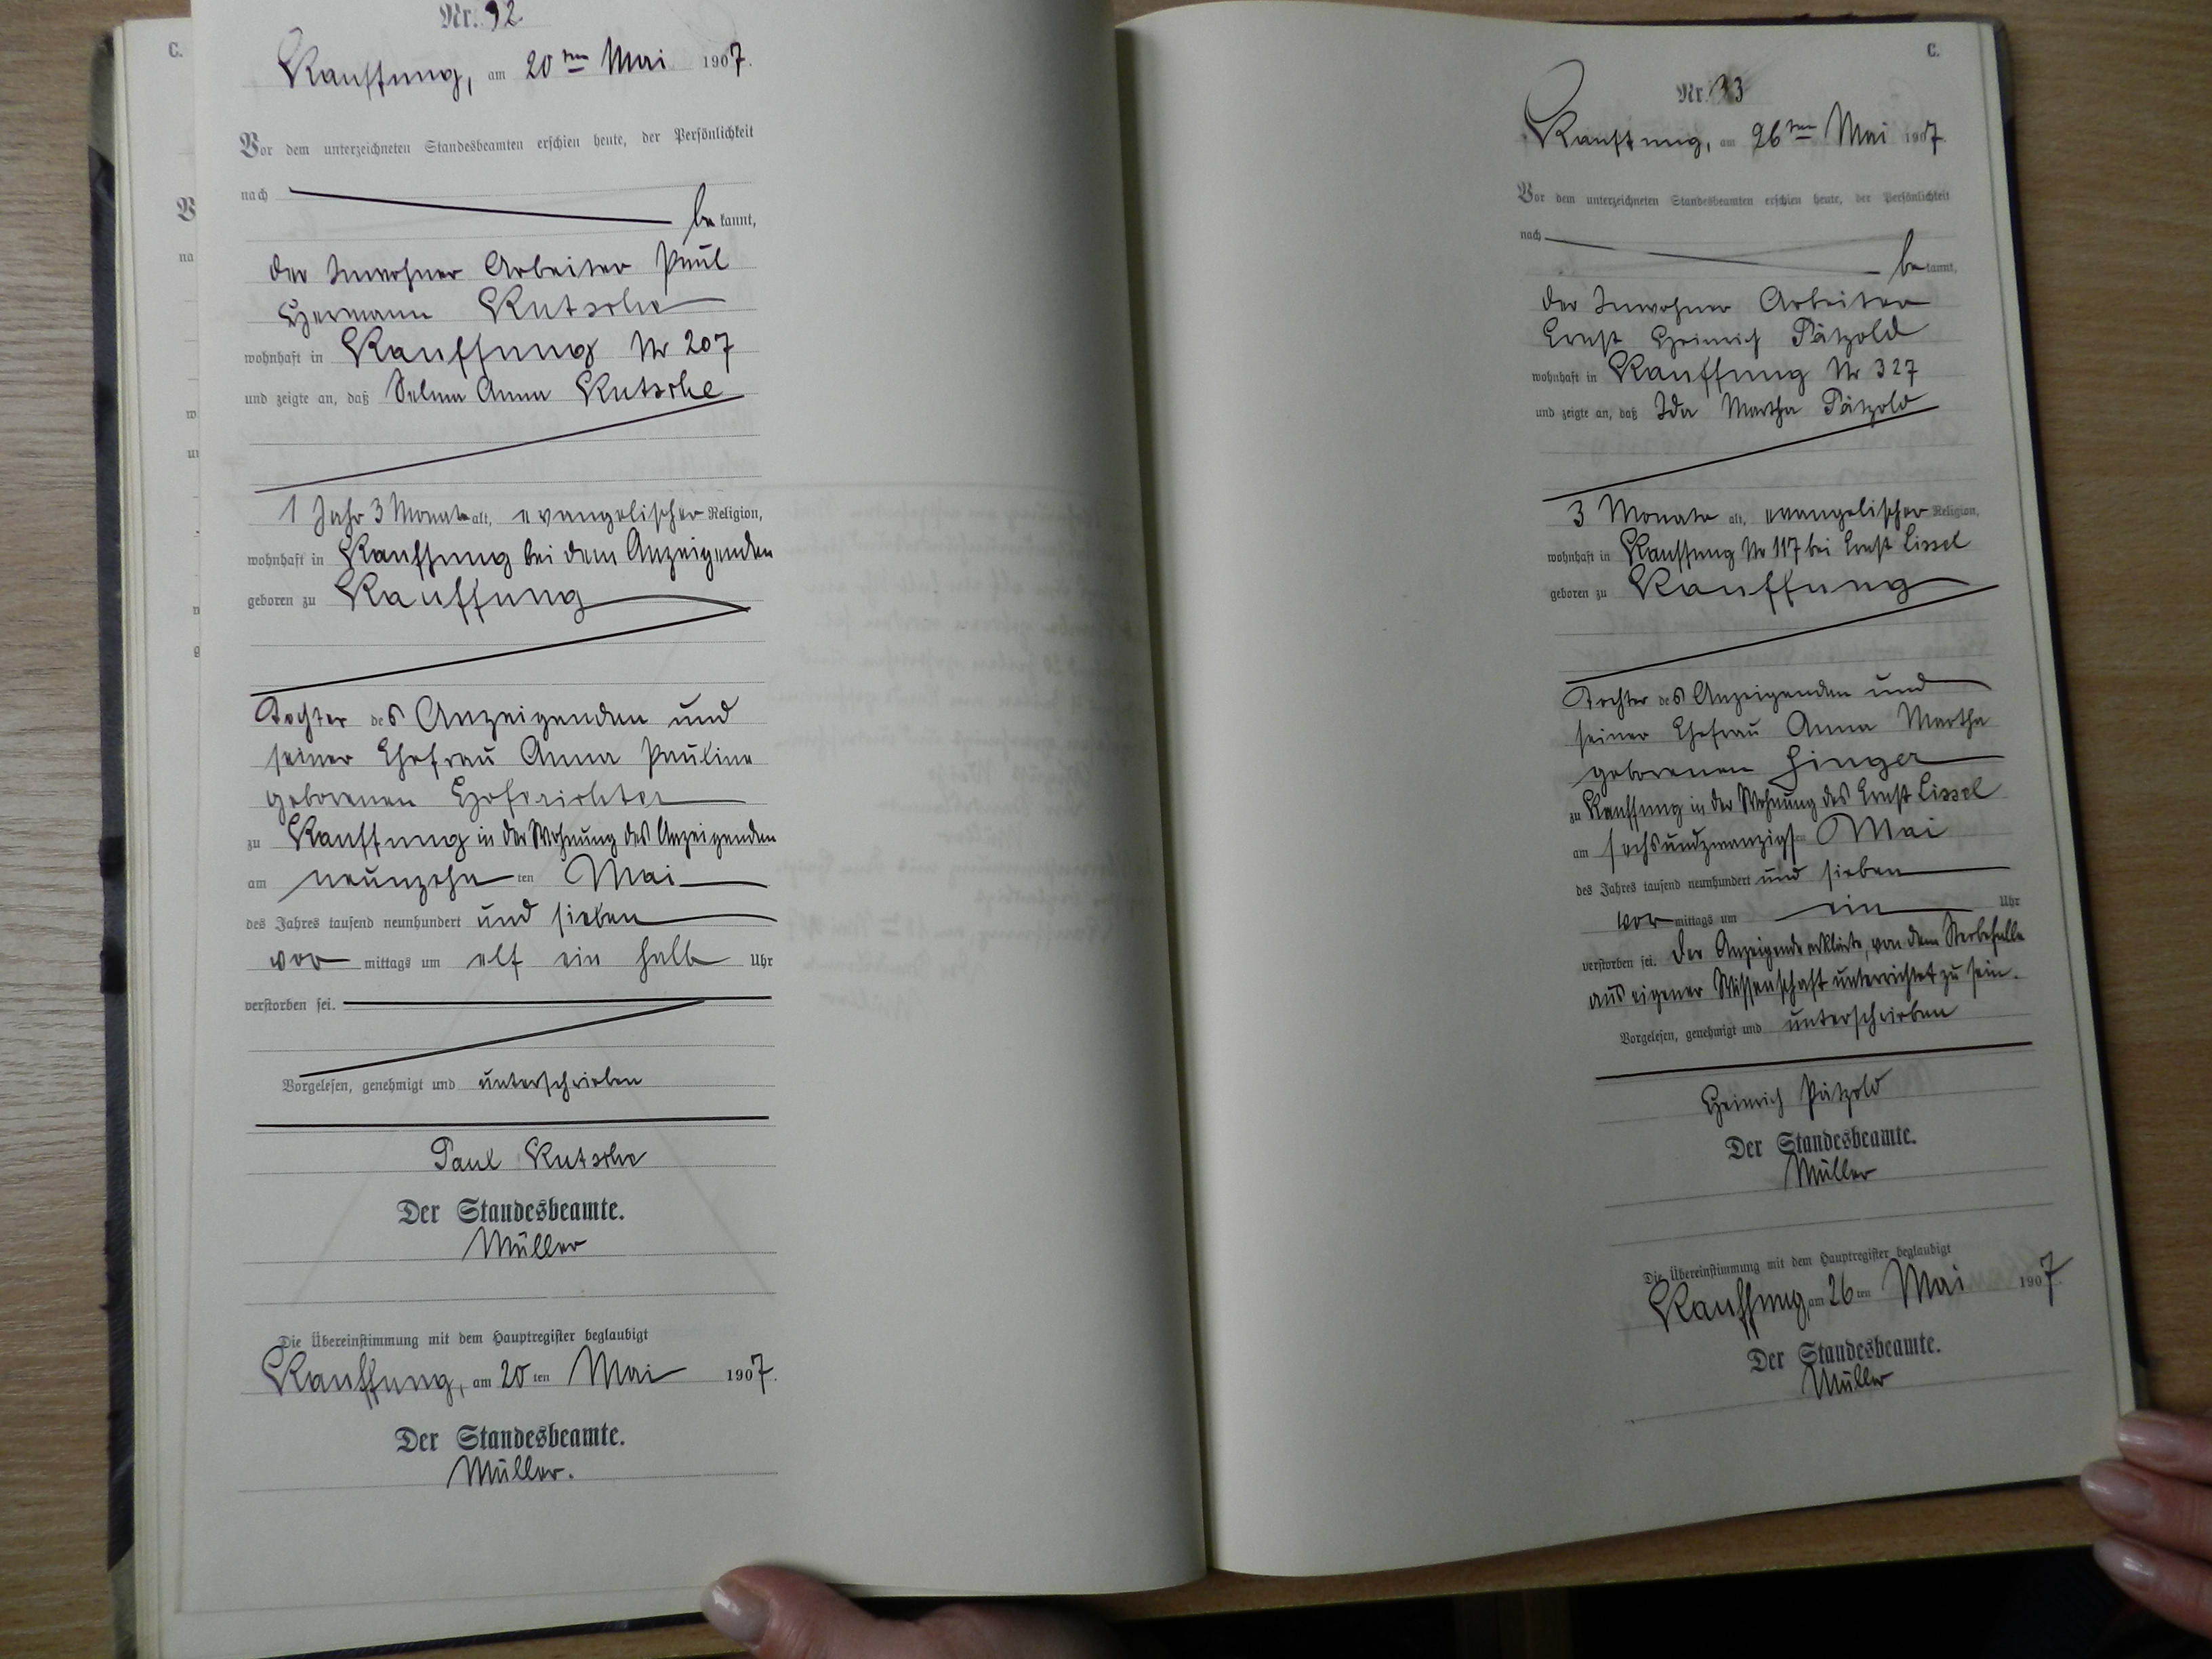 C.
V
na
w
g
Nr. 32
Kauffung, am 20ten Mai 1907.
Vor dem unterzeichneten Standesbeamten erschien heute, der Persönlichkeit
nach
bekannt,
der Inwohner Arbeiter Paul
Hermann Kutsche
wohnhaft in Kauffung Nr 207
und zeigte an, daß Selma Anna Kutsche
1 Jahr 3 Monate alt, evangelischer Religion,
wohnhaft in Kauffung bei dem Anzeigenden
geboren zu Kauffung
Tochter des Anzeigenden und
seiner Ehefrau Anna Pauline
geborenen Hoferichter
zu Kauffung in der Wohnung des Anzeigenden
am neunzehnten Mai
des Jahres tausend neunhundert und sieben
vormittags um elf ein halb Uhr
verstorben sei.
Vorgelesen, genehmigt und unterschrieben
Paul Kutsche
Der Standesbeamte.
Müller
Die Übereinstimmung mit dem Hauptregister beglaubigt
Kauffung, am 20ten Mai 1907.
Der Standesbeamte.
Müller.
C.
Nr. 33
Kauffung, am 26ten Mai 1907.
Vor dem unterzeichneten Standesbeamten erschien heute, der Persönlichkeit
nach
bekannt,
der Inwohner Arbeiter
Ernst Heinrich Pätzold
wohnhaft in Kauffung Nr 327
und zeigte an, daß Ida Martha Pätzold
3 Monate alt, evangelischer Religion,
wohnhaft in Kauffung Nr 117 bei Ernst Lissel
geboren zu Kauffung
Tochter des Anzeigenden und
seiner Ehefrau Anna Martha
geborenen Finger
zu Kauffung in der Wohnung des Ernst Lissel
am sechsundzwanzigsten Mai
des Jahres tausend neunhundert und sieben
vormittags um ein Uhr
verstorben sei. Der Anzeigende erklärte, von dem Sterbefalle
aus eigener Wissenschaft unterrichtet zu sein.
Vorgelesen, genehmigt und unterschrieben
Heinrich Pätzold
Der Standesbeamte.
Müller
Die Übereinstimmung mit dem Hauptregister beglaubigt
Kauffung, am 26ten Mai 1907.
Der Standesbeamte.
Müller